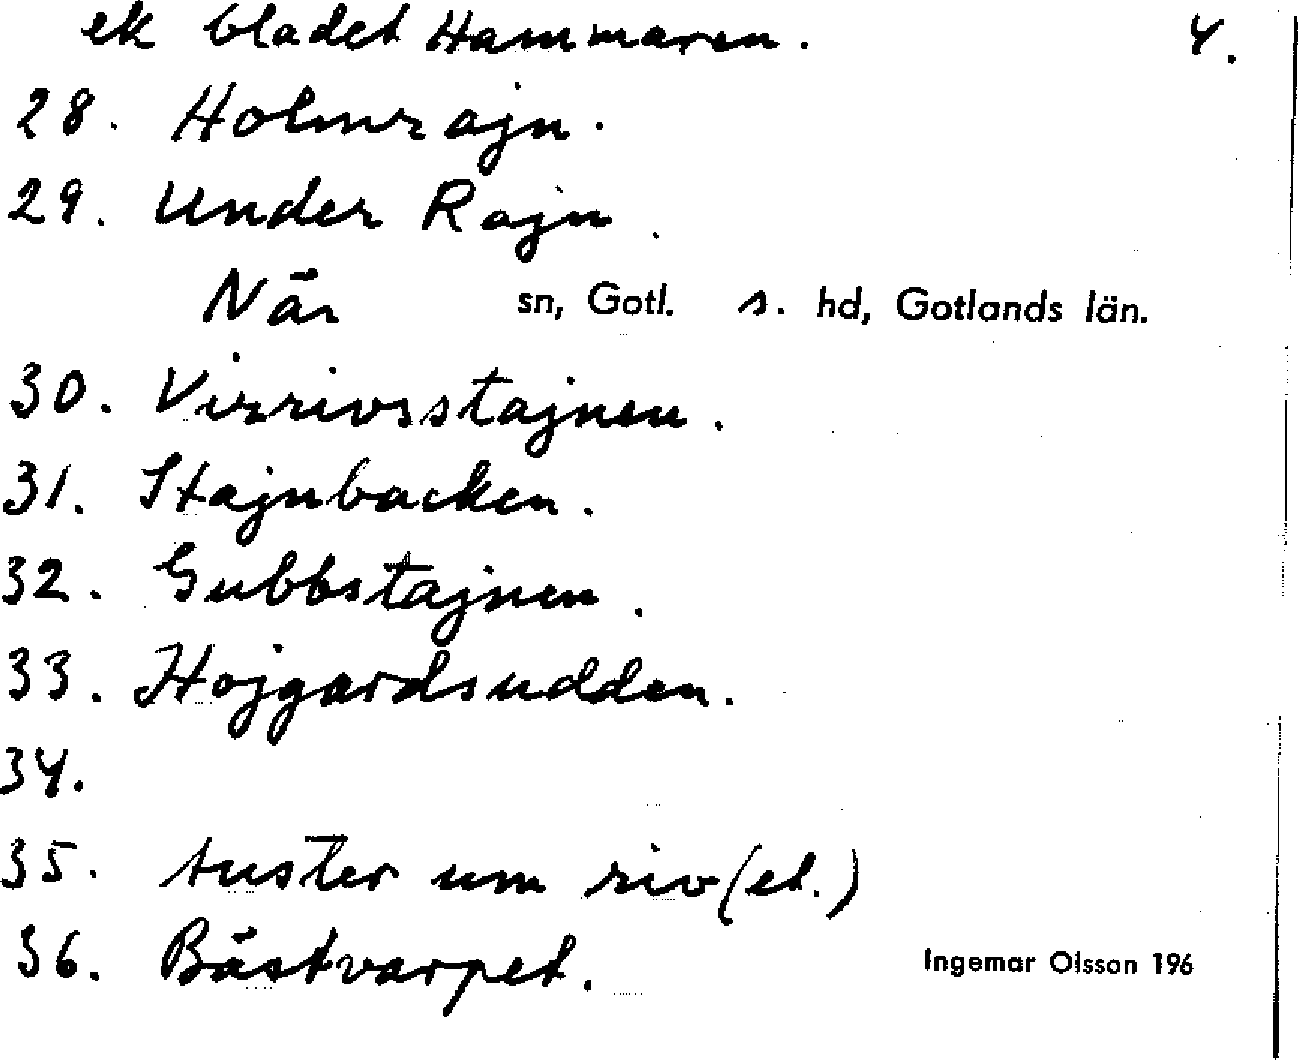 ek bladet Hammaren. 4.
28. Holmrajn.
29. Under Rajn.
När sn, Gotl. s. hd, Gotlands län.
30. Virrivsstajnen.
31. Stajnbacken.
32. Gubbstajnen.
33. Hojgardsudden.
34.
35. Auster um riv(et.)
36. Bästvarpet.
Ingemar Olsson 196